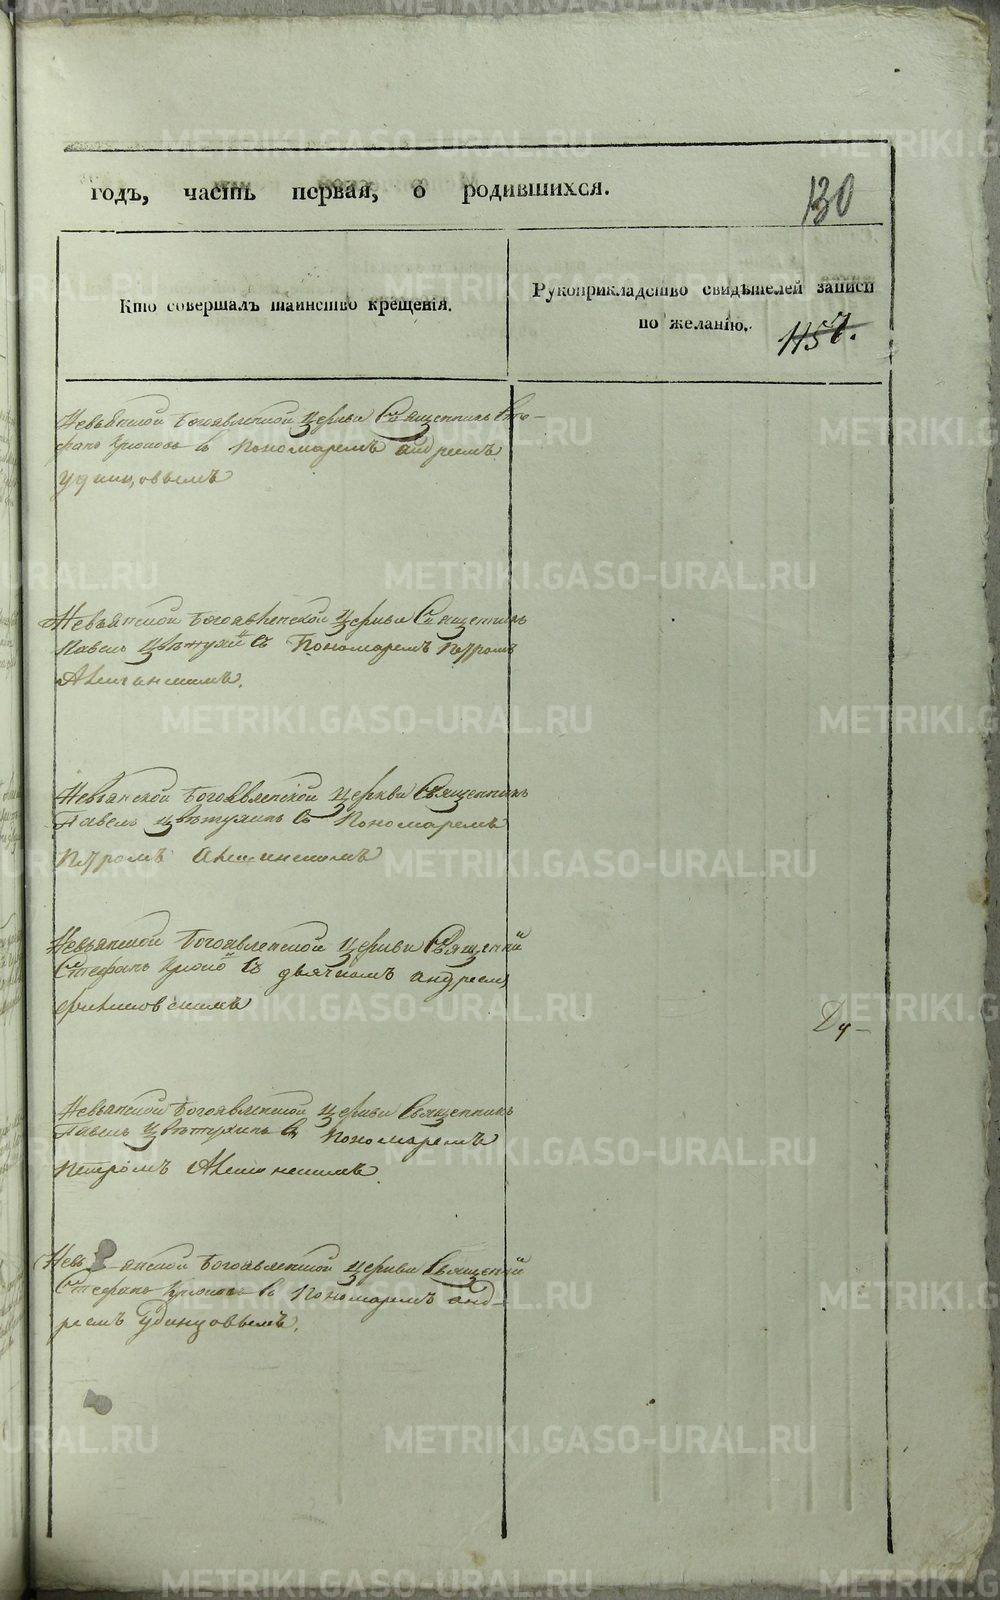 годъ, часть первая, о родившихся.
130
Кто совершалъ таинство крещенія.
Рукоприкладство свидѣтелей записи
по желанію.
1157.
Невьянской Богоявленской церкви Священникъ Сте-
фанъ с Пономаремъ андреемъ
удинцовымъ
Невьянской Богоявленской церкви Священникъ
Павелъ с Пономаремъ Петромъ
Невьянской Богоявленской церкви Священникъ
Павелъ Цвѣтухинъ с Пономаремъ
Петромъ
Невьянской Богоявленской церкви Священѝ
Стефанъ съ дьячкомъ андреемъ
Невьянской Богоявленской церкви Священникъ
Павелъ Цвѣтухинъ с Пономаремъ
Петромъ
Невьянской Богоявленской церкви Священѝ
Стефанъ с Пономаремъ анд-
реемъ Удинцовымъ.
METRIKI.GASO-URAL.RU